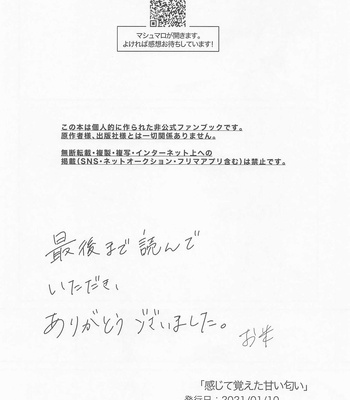 マシュマロが開きます。
よければ感想お待ちしています!
この本は個人的に作られた非公式ファンブックです。
原作者様、出版社様とは一切関係ありません。
無断転載・複製・複写・インターネット上への
掲載(SNS・ネットオークション・フリマアプリ含む)は禁止です。
最後まで読んで
いただき
ありがとうございました。
「感じて覚えた甘い匂い」
発行日:2021/01/10